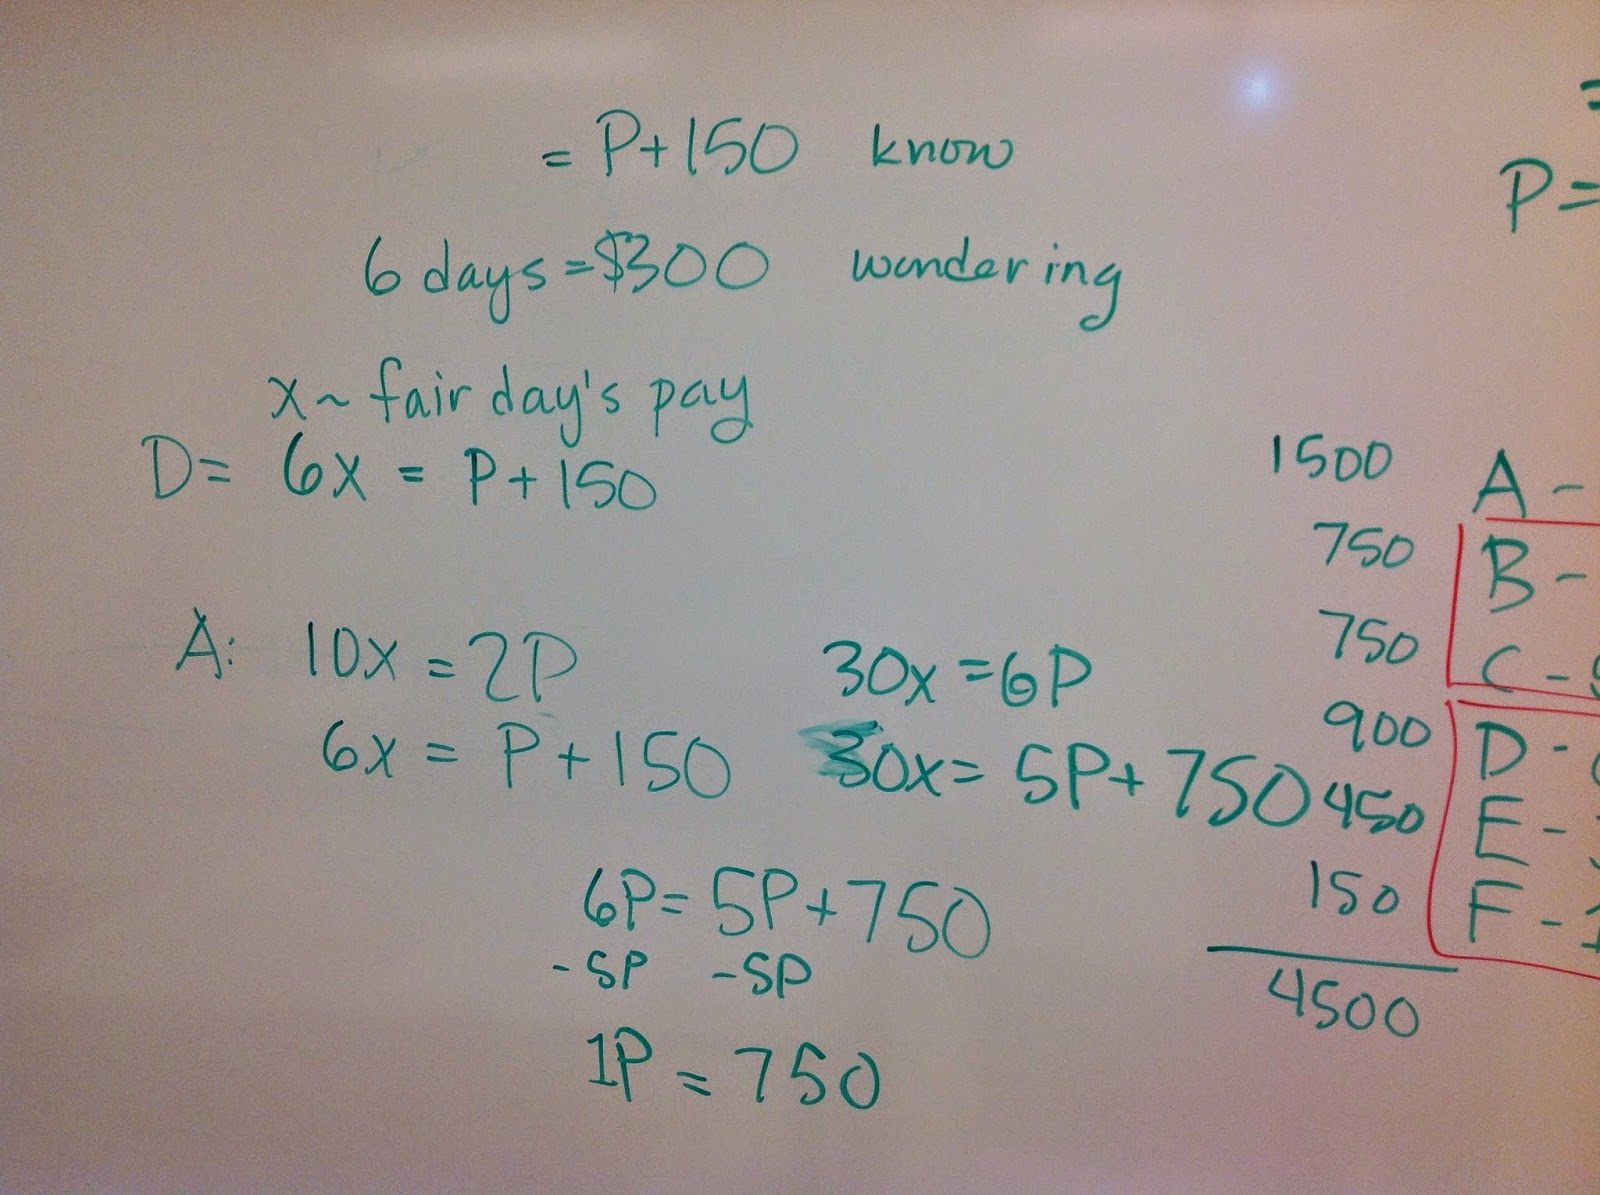 = P+150 know
6 days = $300 wondering
x~ fair day's pay
D= 6x = P+150
A: 10x = 2P
6x = P+150
30x = 6P
30x = 5P+750
6P = 5P+750
-5P -5P
1P = 750
P=
1500 A -
750 B -
750 C -
900 D -
450 E -
150 F -
4500